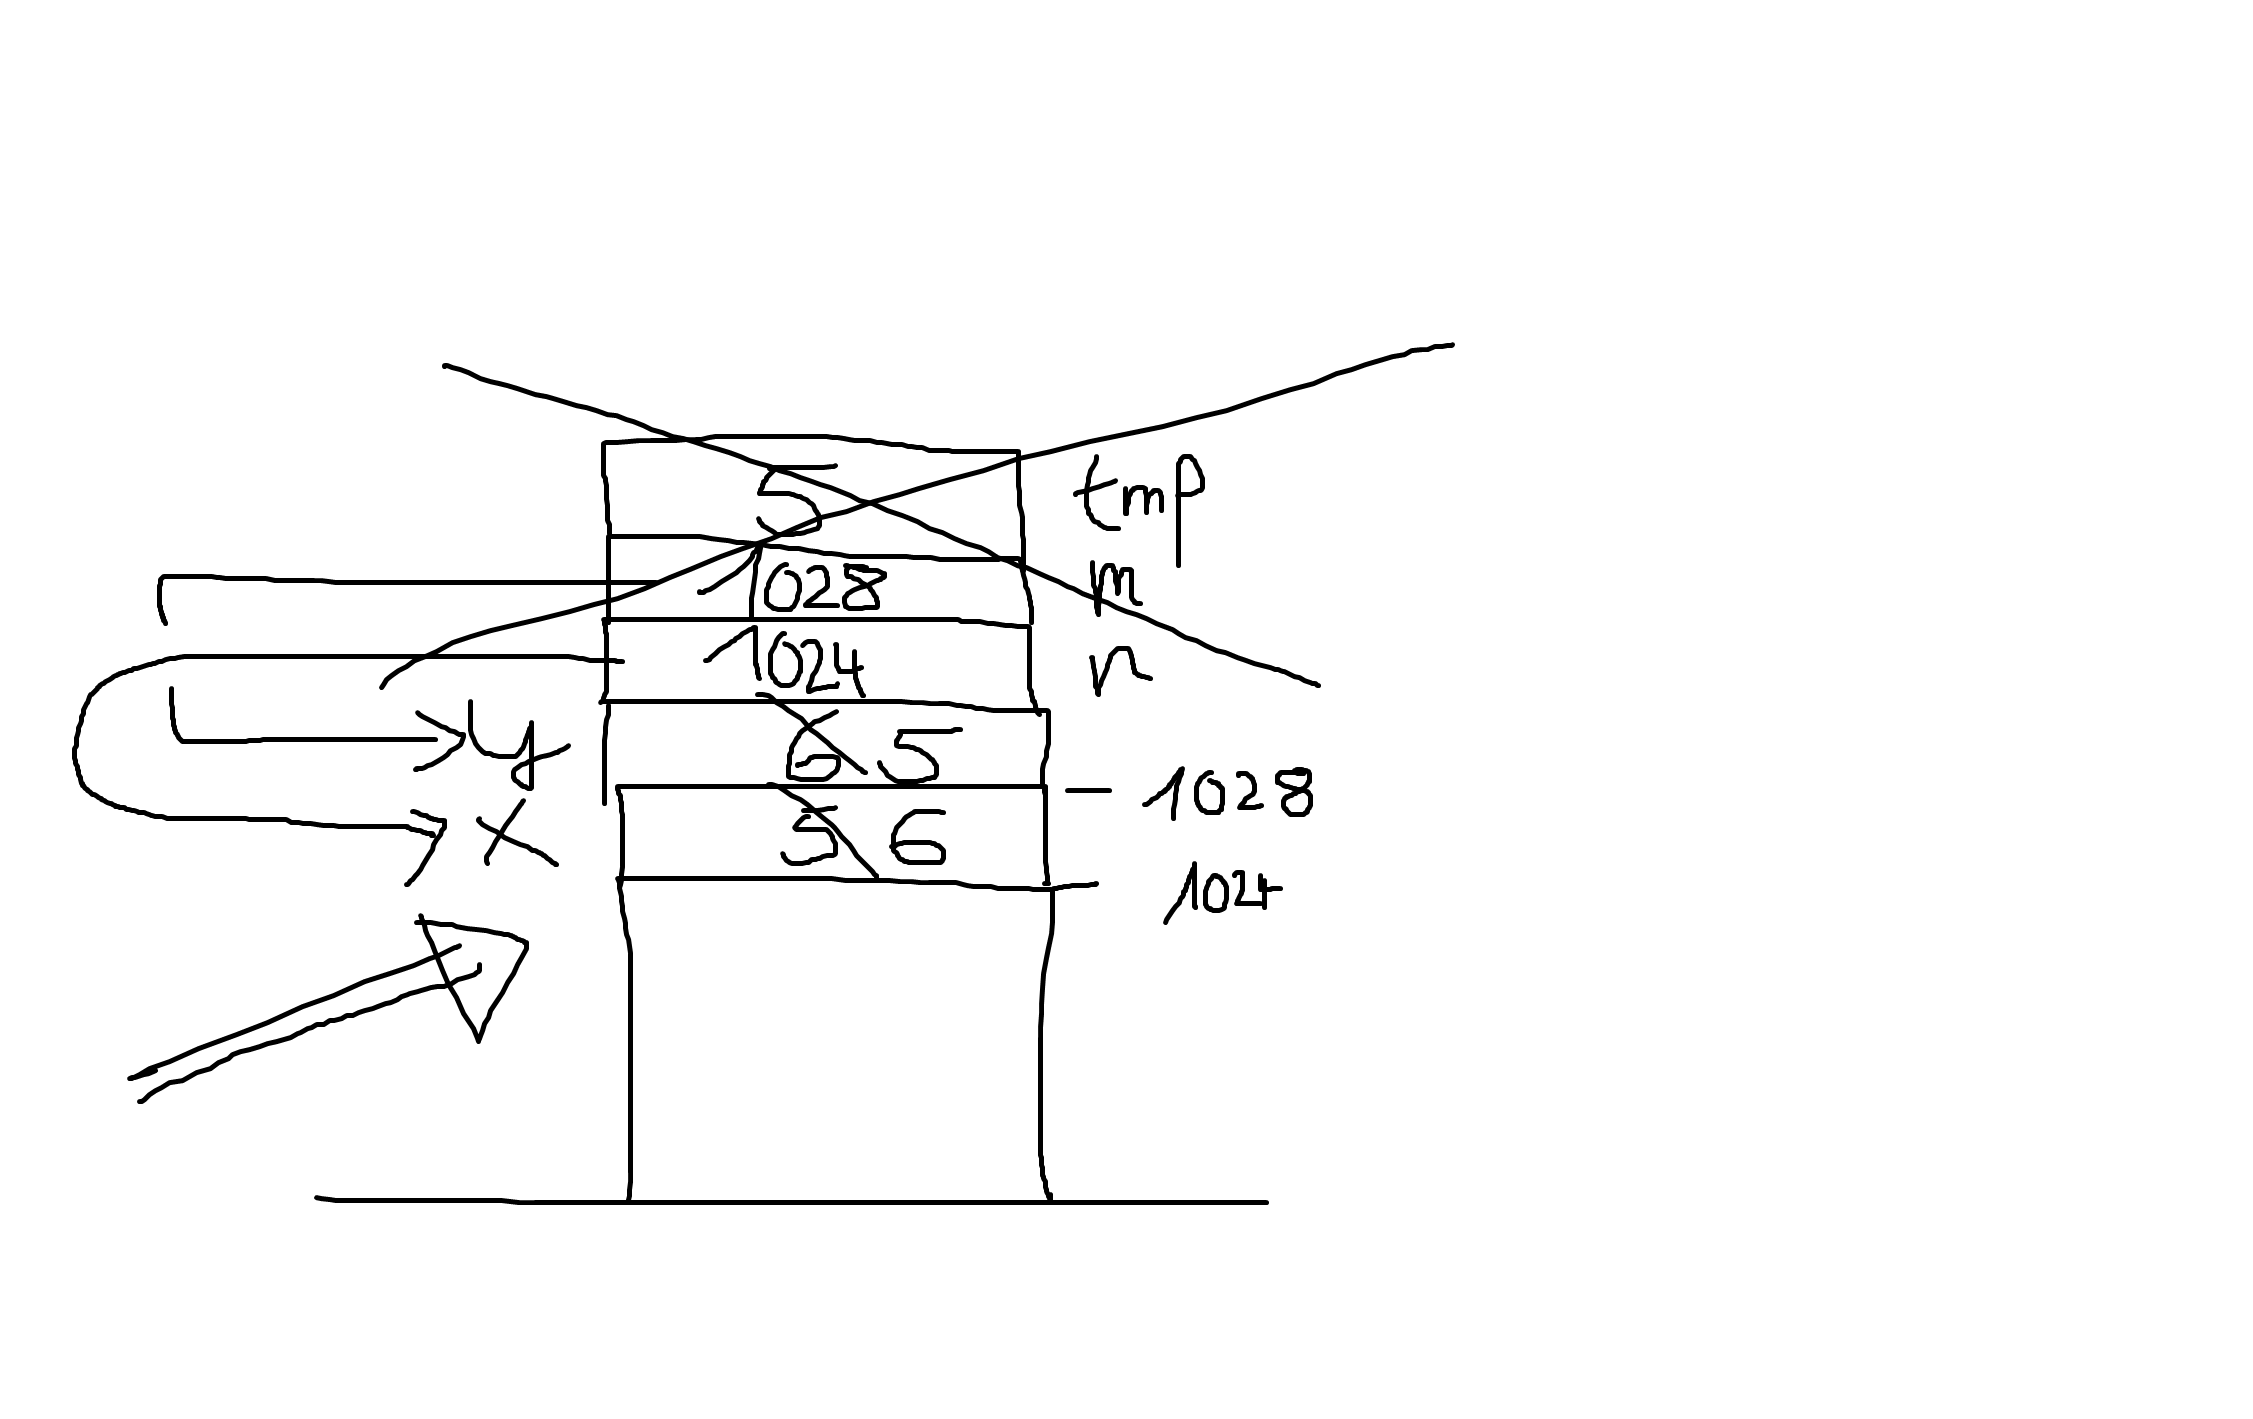 5 tmp
1028 m
1024 n
y 6 5
- 1028
x 5 6
1024